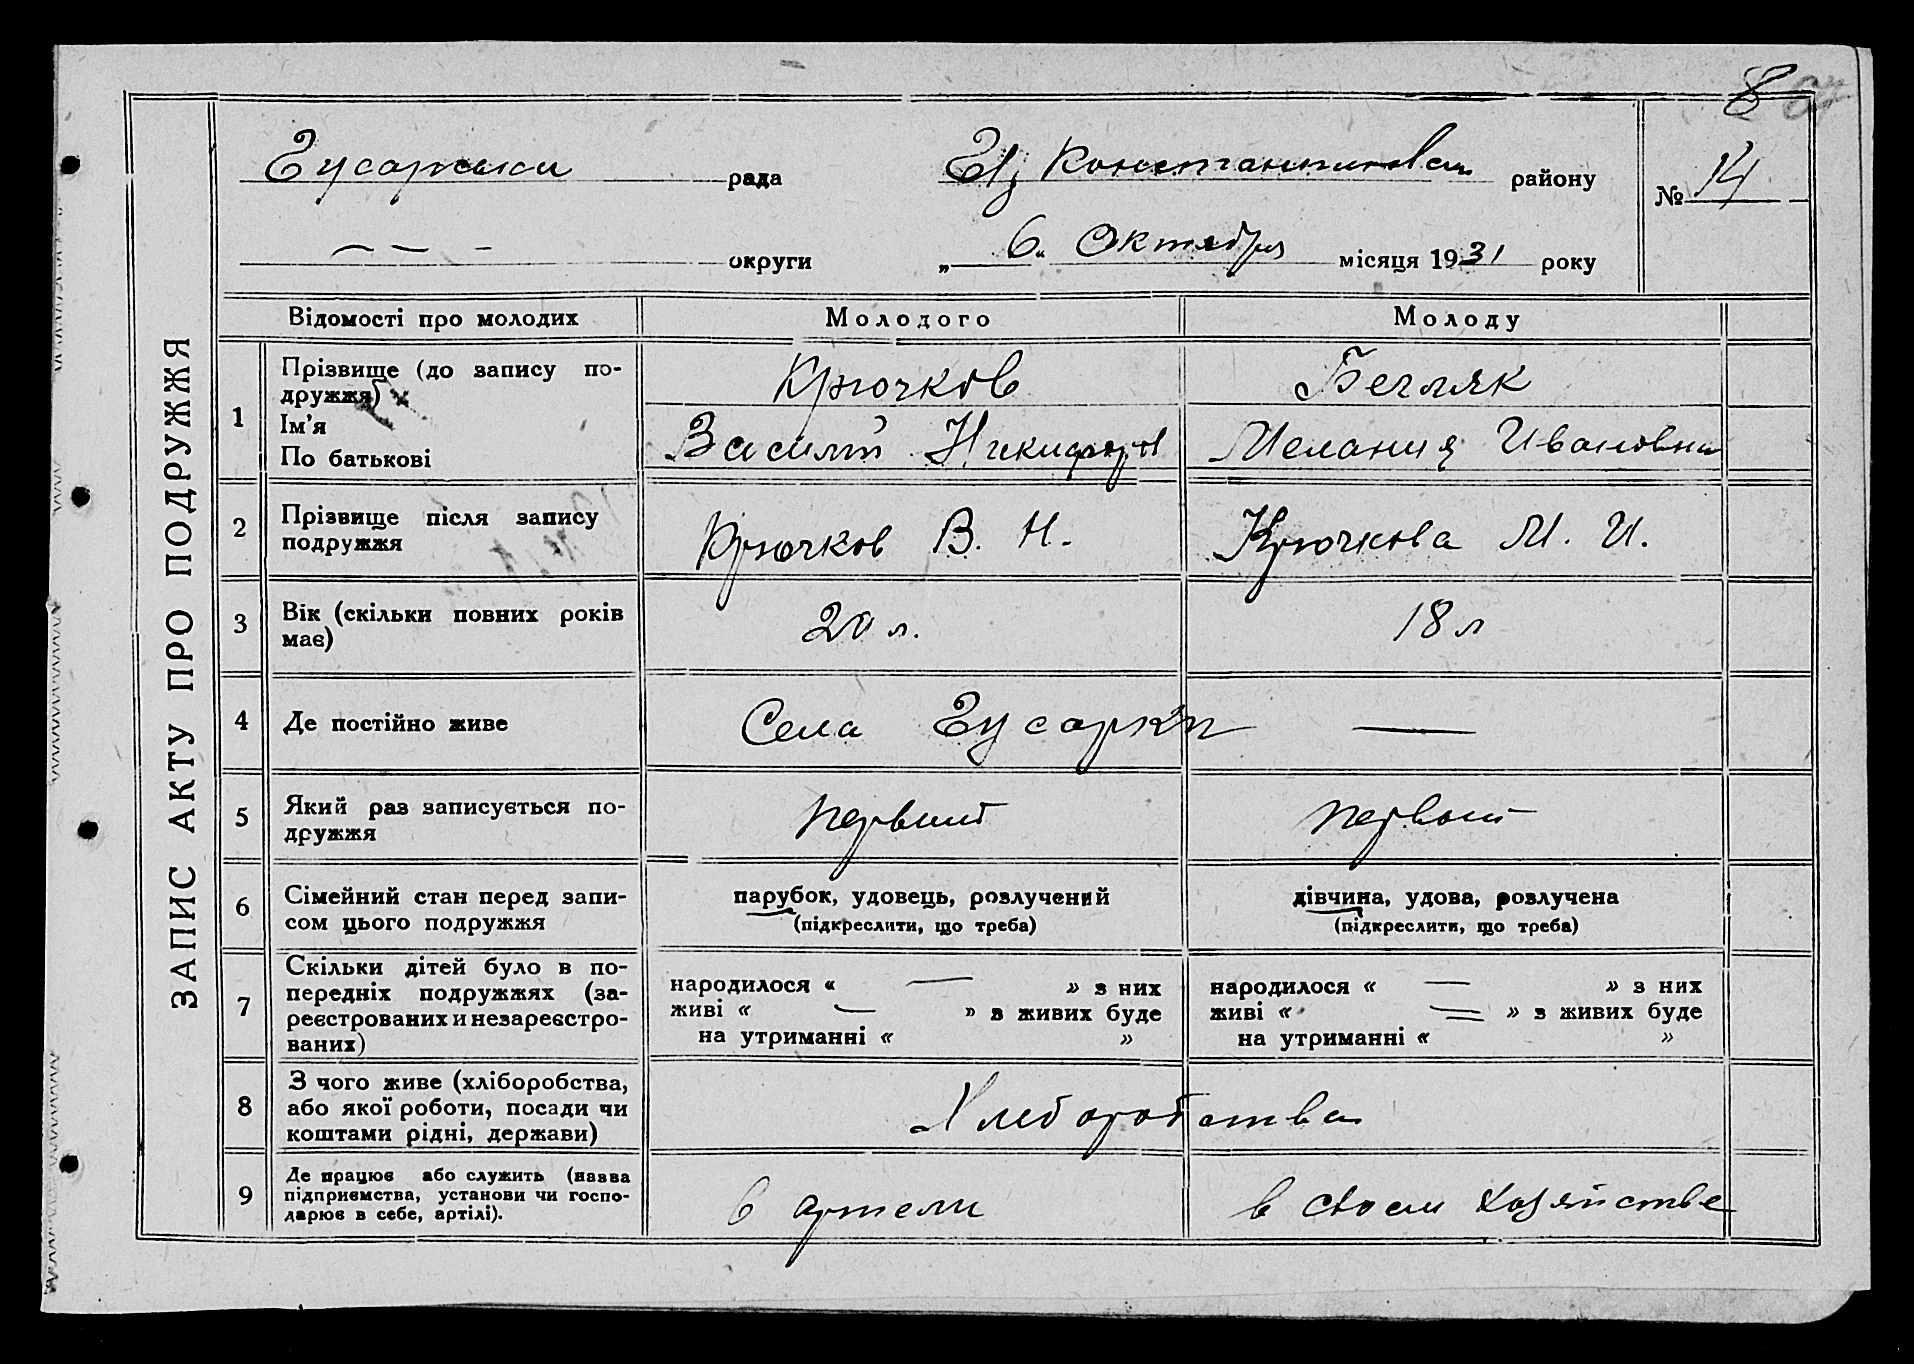 8 67
ЗАПИС АКТУ ПРО ПОДРУЖЖЯ
Гусарски рада
Ел Константиновски району
№ 14
— — - округи
„ 6 “ Октября місяця 1931 року
Відомості про молодих Молодого Молоду
1 Прізвище (до запису по-
дружжя)
Ім'я
По батькові
Крючков
Василий Никифор
Бегляк
Мелания Ивановна
2 Прізвище після запису
подружжя
Крючков В. Н.
Крючкова М. И.
3 Вік (скільки повних років
має)
20 л.
18 л
4 Де постійно живе
Села Гусарки
—
5 Який раз записується по-
дружжя
первий
первой
6 Сімейний стан перед запи-
сом цього подружжя
парубок, удовець, розлучений
(підкреслити, що треба)
дівчина, удова, розлучена
(підкреслити, що треба)
7 Скільки дітей було в по-
передніх подружжях (за-
реєстрованих и незареєстро-
ваних)
народилося « — » з них
живі « — » з живих буде
на утриманні « »
народилося « — » з них
живі « — » з живих буде
на утриманні « »
8 З чого живе (хліборобства,
або якої роботи, посади чи
коштами рідні, держави)
Хлеборобства
9 Де працює або служить (назва
підприємства, установи чи госпо-
дарює в себе, артілі).
в артели
в своем хозяйстве